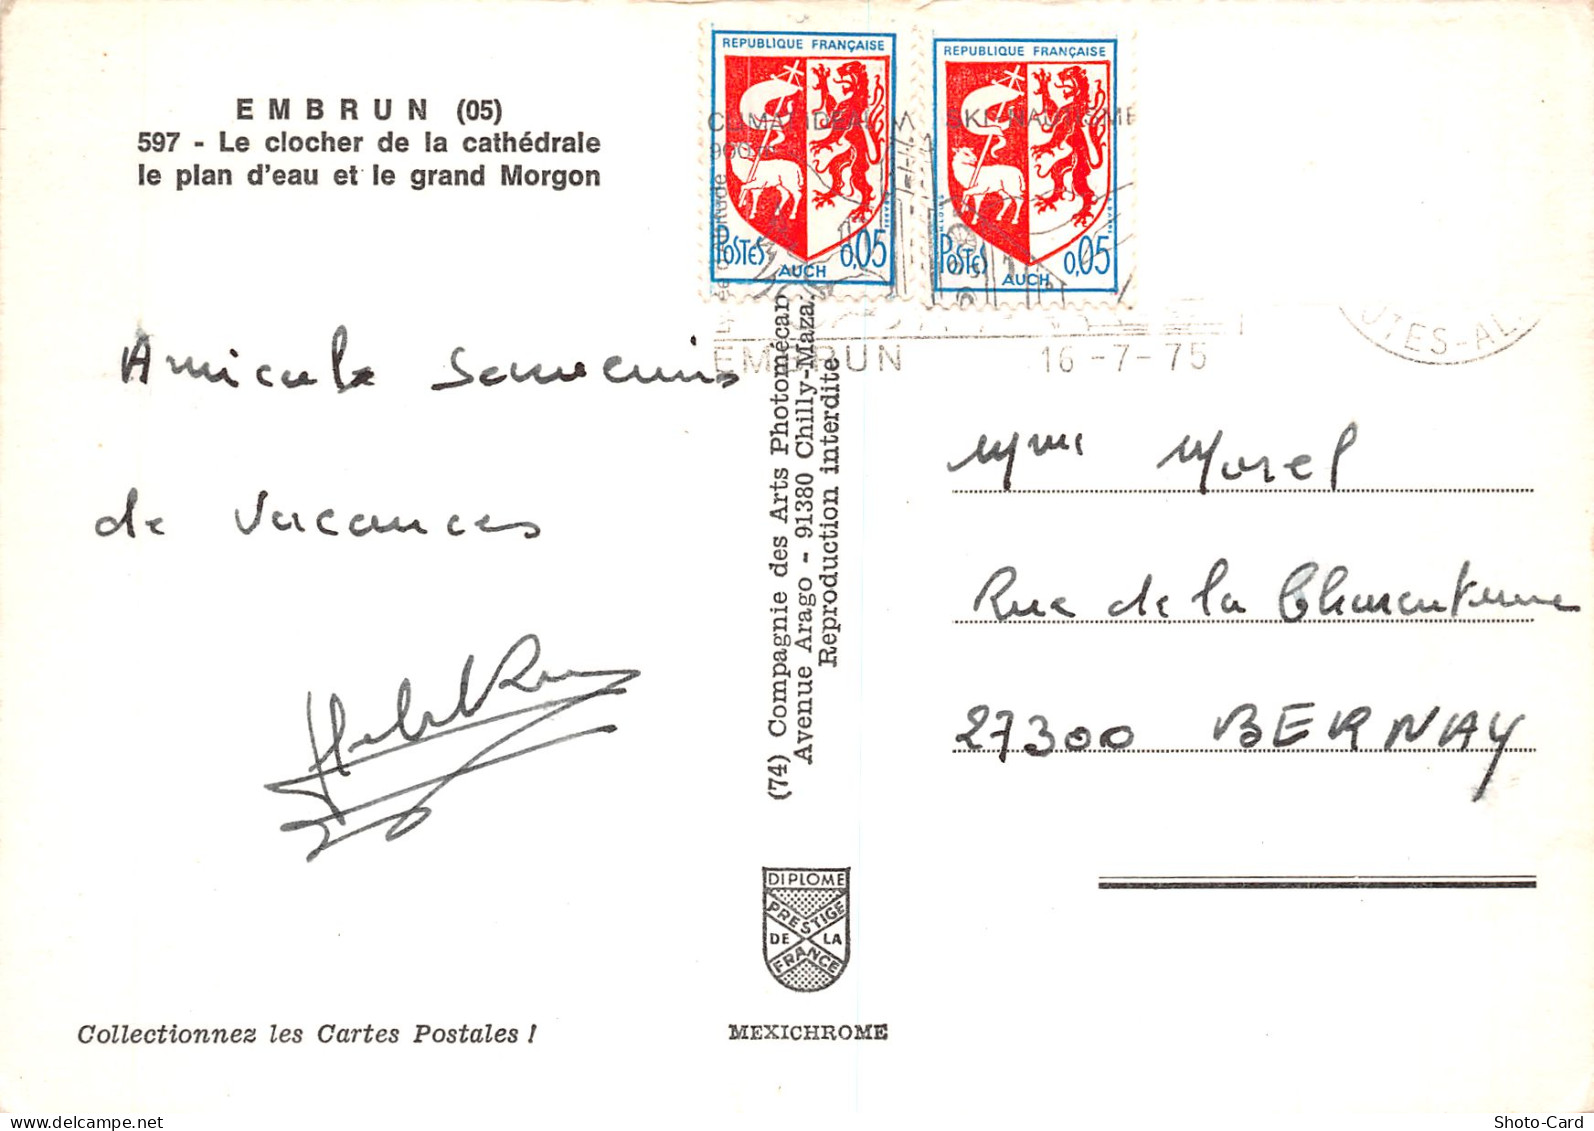 EMBRUN (05)
597 - Le clocher de la cathédrale
le plan d'eau et le grand Morgon
REPUBLIQUE FRANÇAISE
POSTES
0,05
AUCH
REPUBLIQUE FRANÇAISE
POSTES
0,05
AUCH
CLIMAT IDEAL
SKI NAUTISME
EMBRUN 16-7-75
Amicale Souvenirs
de Vacances
(74) Compagnie des Arts Photomécan
Avenue Arago - 91380 Chilly-Maza.
Reproduction interdite
Mme Morel
Rue de la Charentonne
27300 BERNAY
DIPLOME
PRESTIGE
DE LA
FRANCE
Collectionnez les Cartes Postales !
MEXICHROME
Shoto-Card